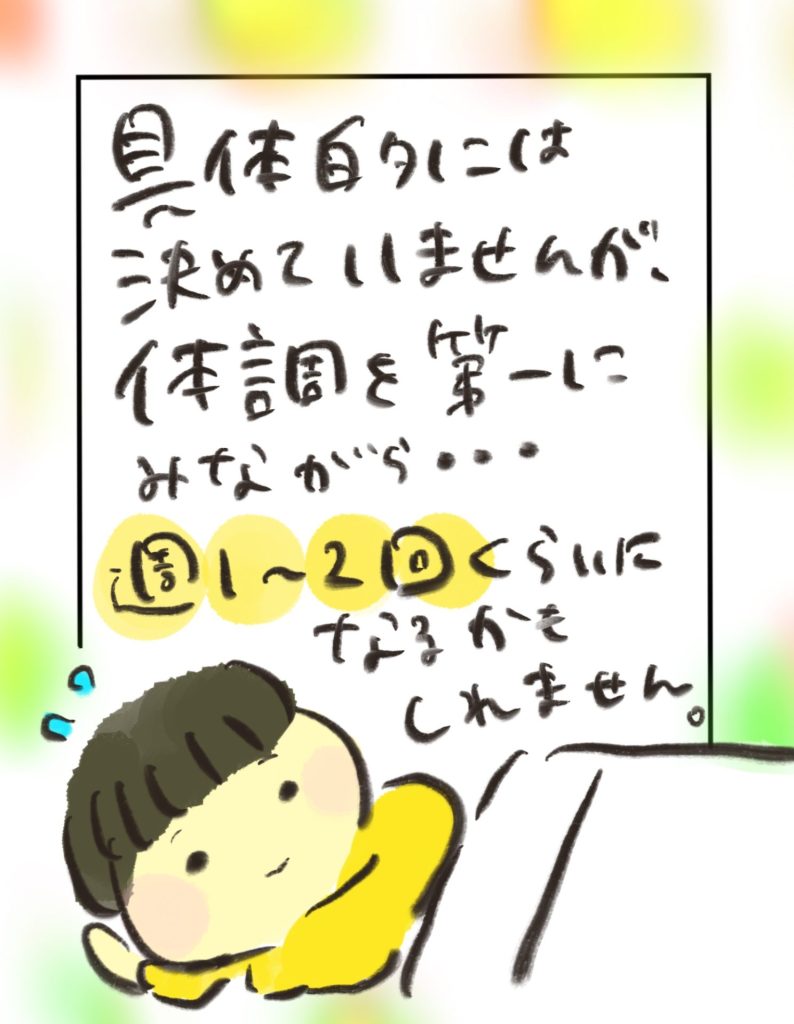 具体的には
決めていませんが、
体調を第一に
みながら・・・
週1〜2回くらいに
なるかも
しれません。